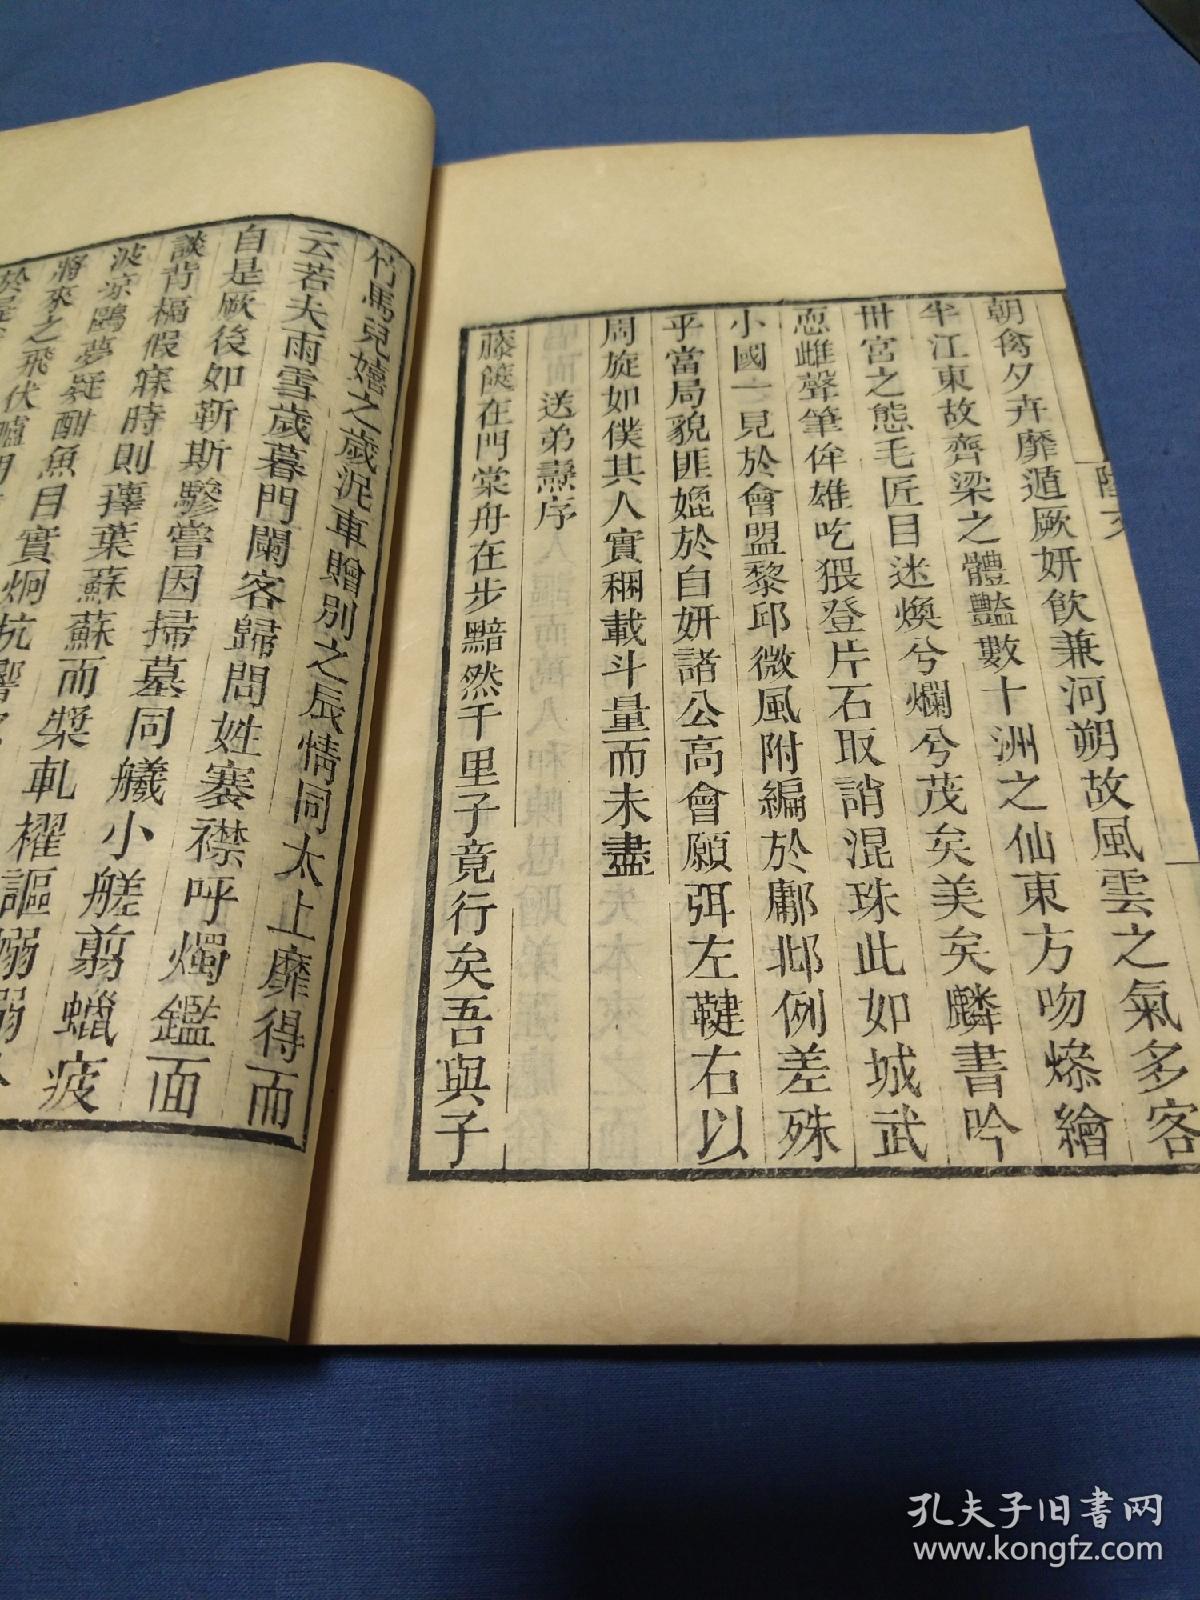 朝禽夕卉靡遁厥妍飲兼河朔故風雲之氣多客
半江東故齊梁之體豔數十洲之仙東方吻燥繪
卅宮之態毛匠目迷煥兮爛兮茂矣美矣麟書吟
惡雌聲筆侔雄吃猥登片石取誚混珠此如城武
小國一見於會盟黎邱微風附編於鄘邶例差殊
乎當局貌匪媲於自妍諸公高會願弭左鞬右以
周旋如僕其人實稇載斗量而未盡
送弟燾序
藤篋在門棠舟在步黯然千里子竟行矣吾與子
竹馬兒嬉之歲泥車贈別之辰情同太上靡得而
云若夫雨雪歲暮門闌客歸問姓搴襟呼燭鑑面
自是厥後如靳斯驂嘗因掃墓同艤小艖翦蠟疲
談背槅假寐時則蘀葉蘇蘇而槳軋櫂謳嫋嫋
波凉鷗夢疑酣魚目實炯抗
將來之飛伏
孔夫子旧书网
www.kongfz.com